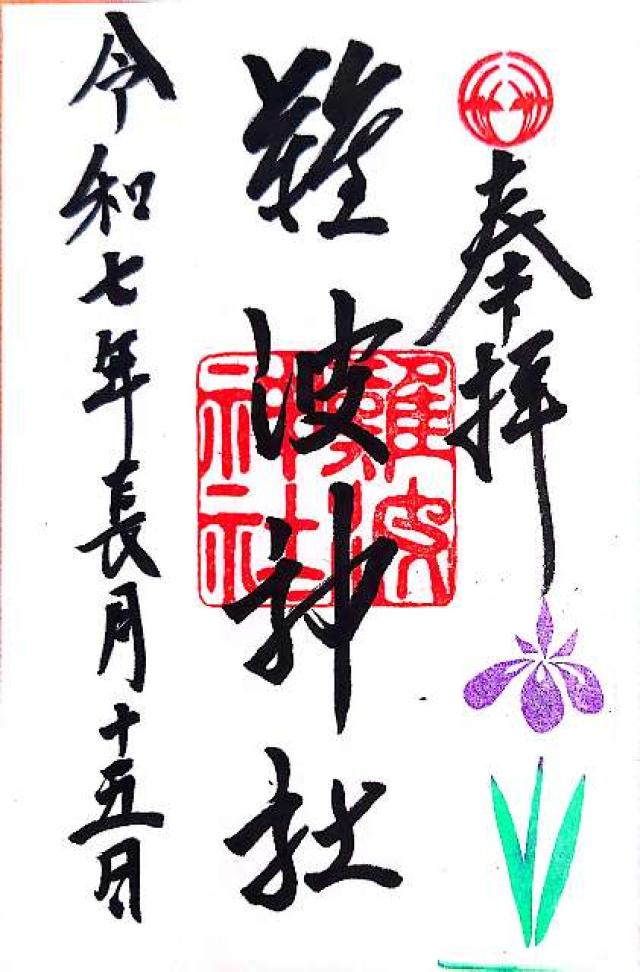 奉拝
難波神社
難波神社
令和七年長月十五日